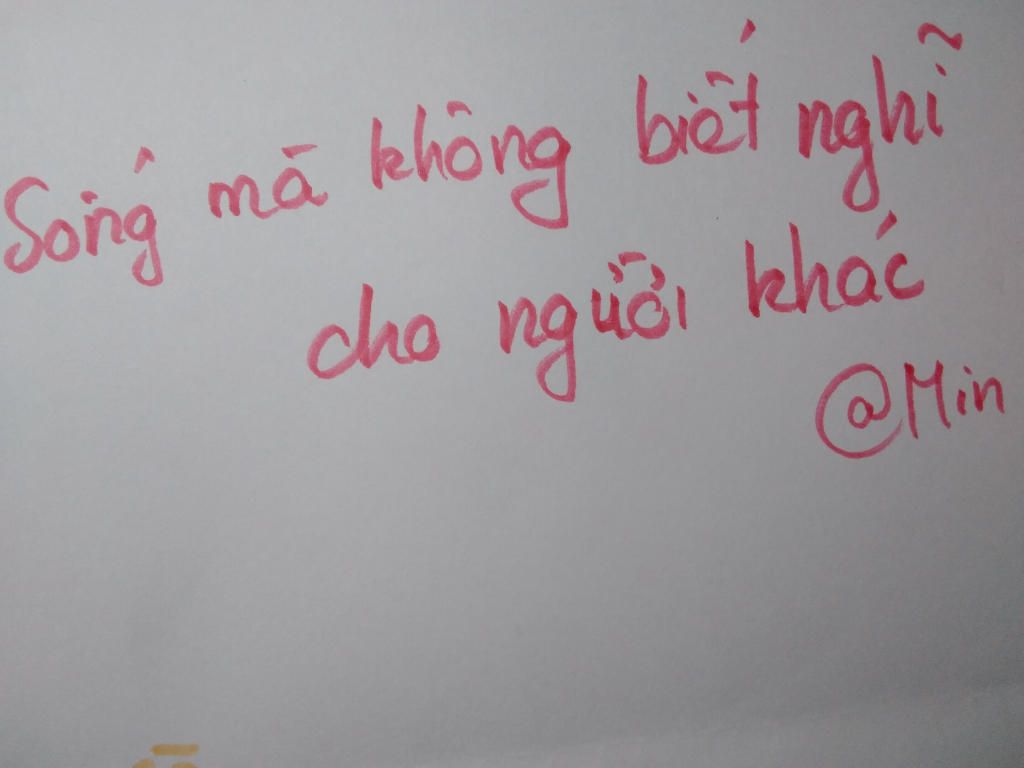 Sống mà không biết nghĩ
cho người khác
@Min